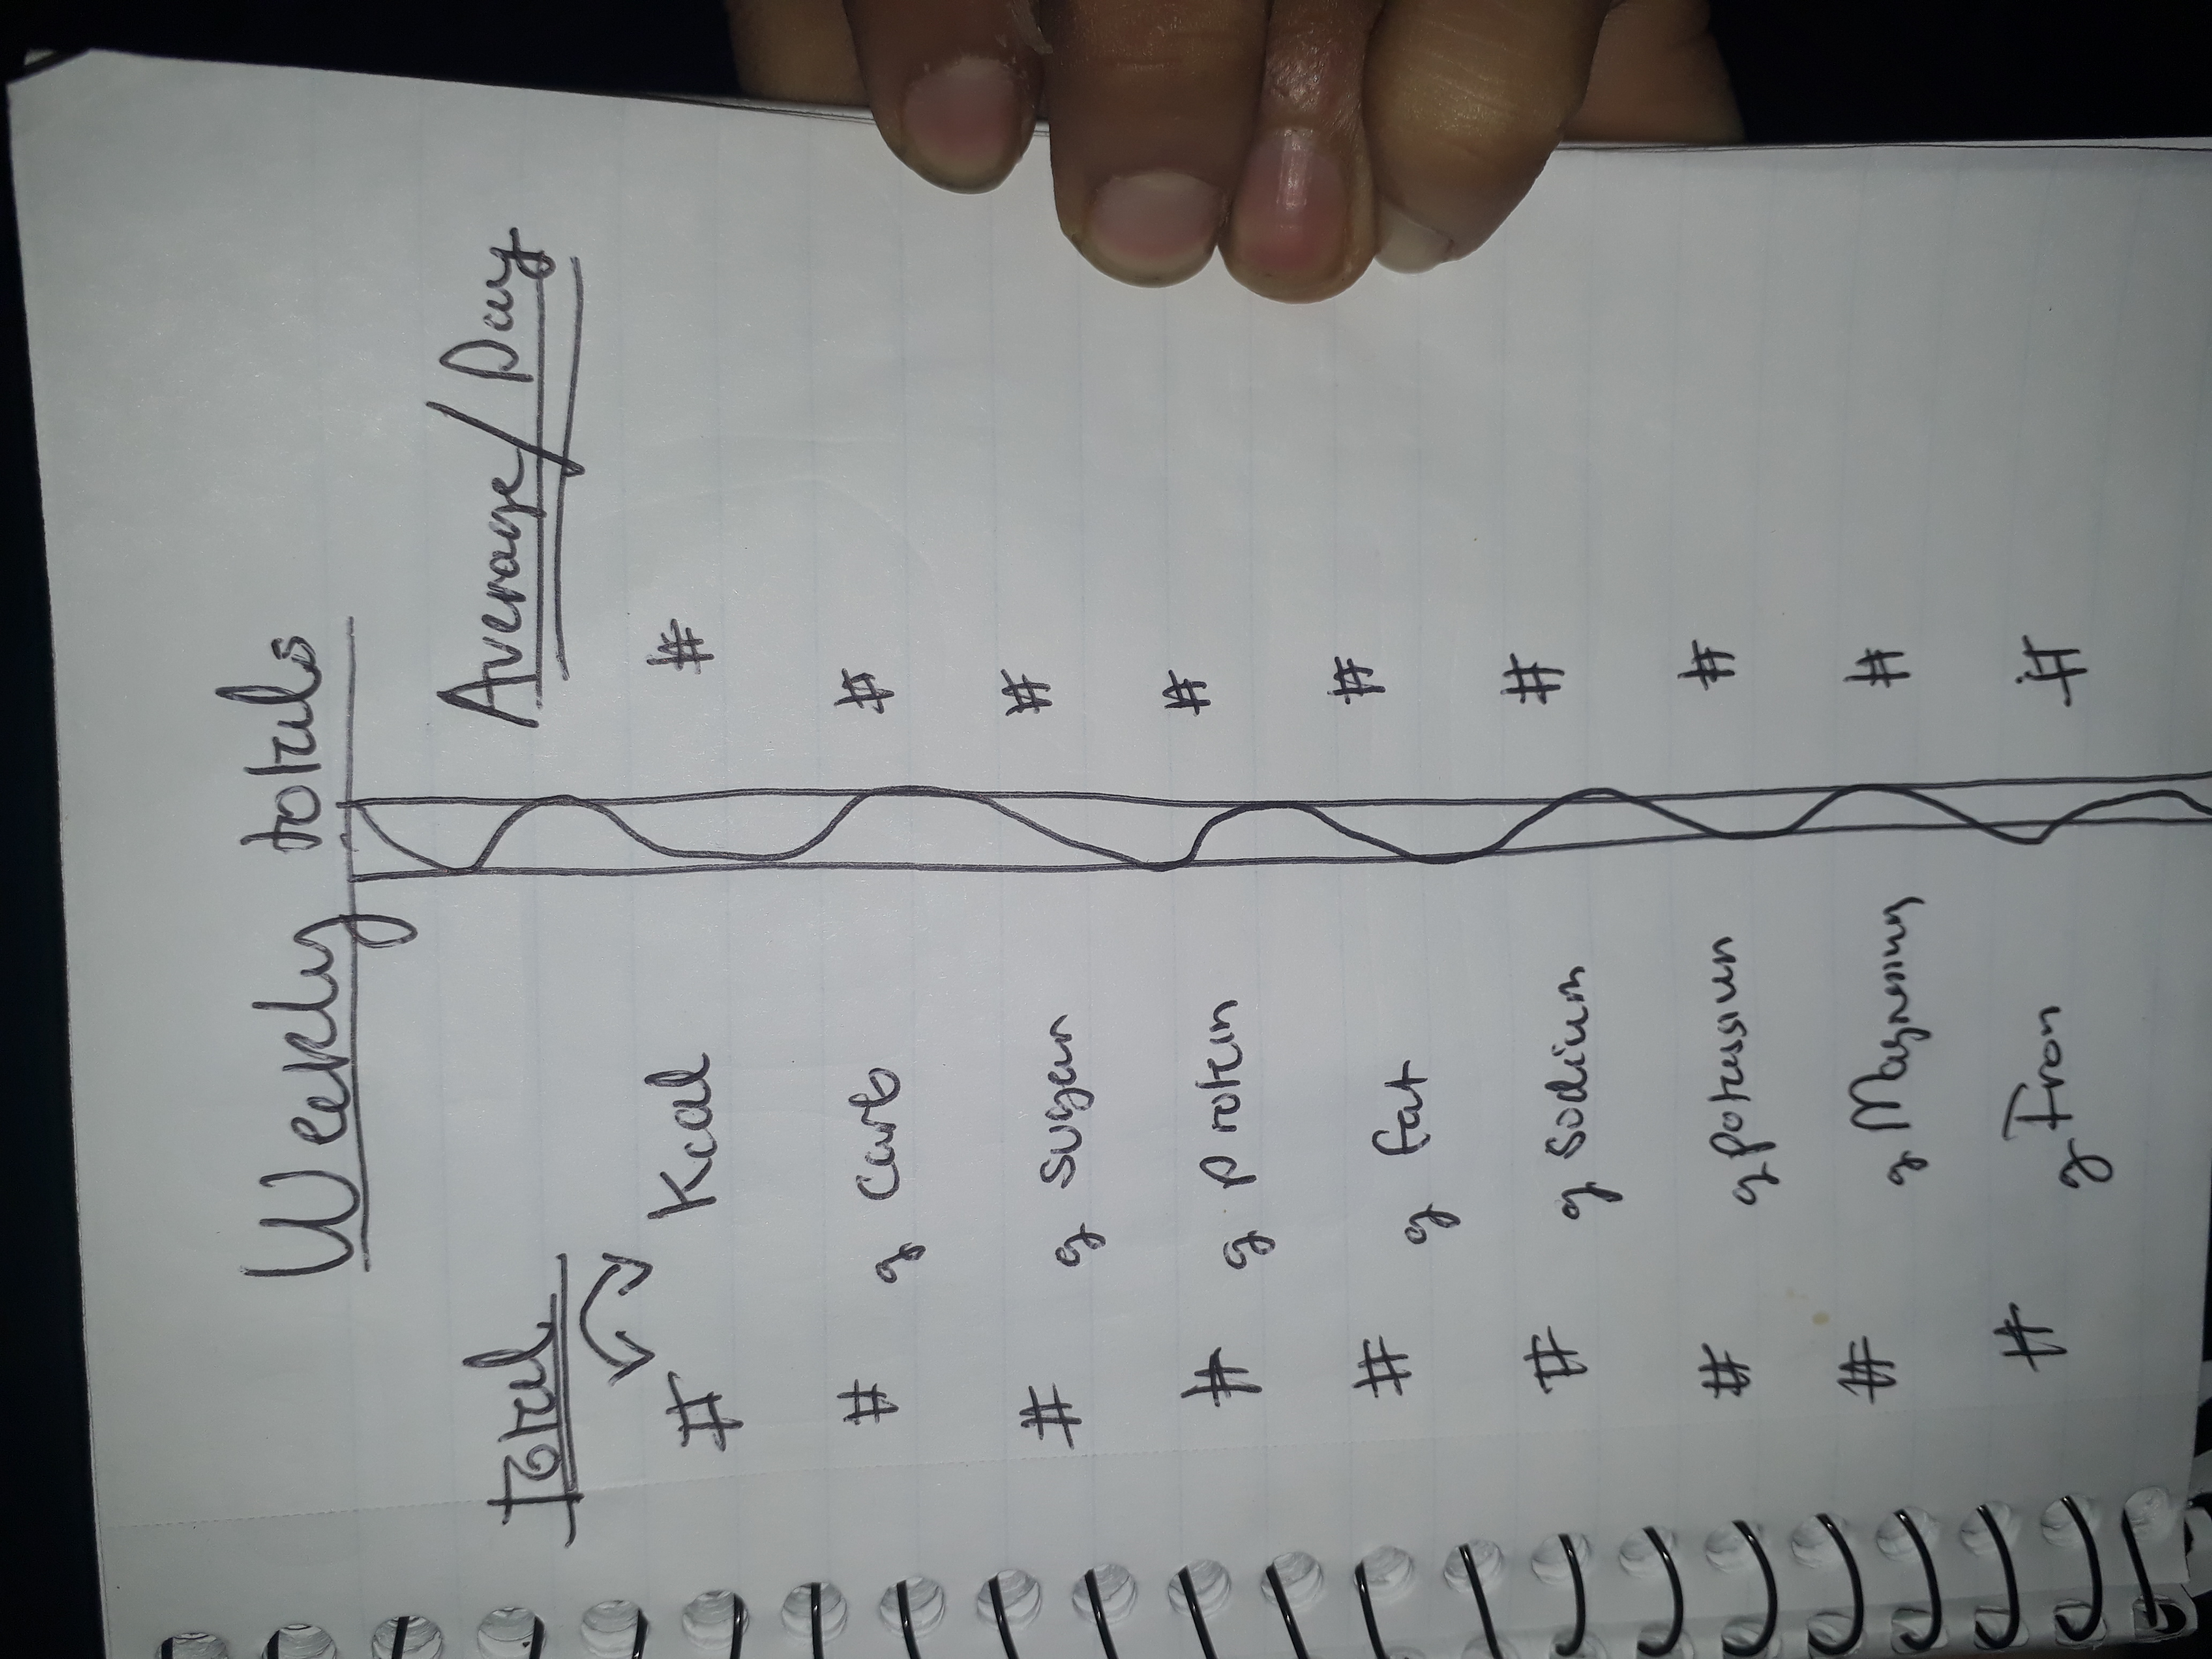 Weekly totals
total Average/Day
# Kcal #
# g carb #
# g sugar #
# g protein #
# g fat #
# g sodium #
# g potassium #
# g Magnesium #
# g Iron #